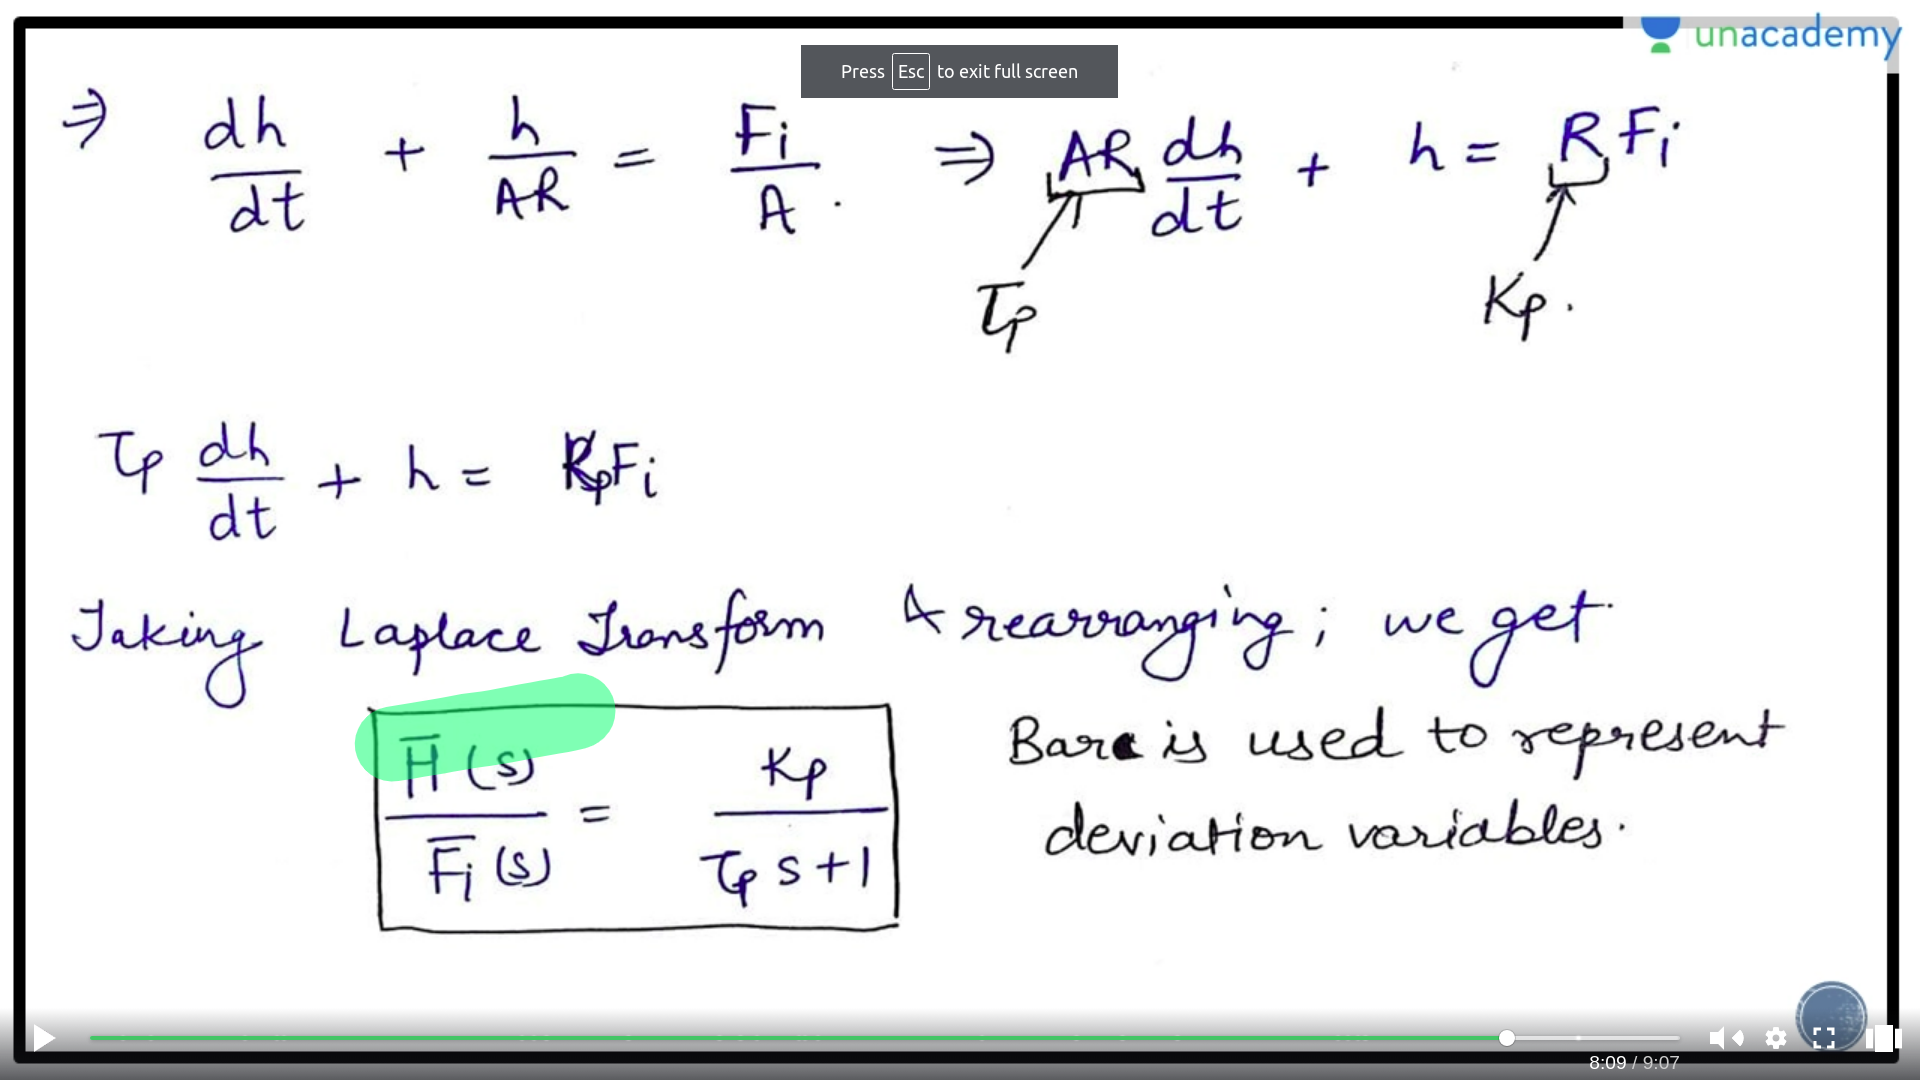 unacademy
Press Esc to exit full screen
⇒ dh/dt + h/AR = Fi/A . ⇒ AR dh/dt + h = R Fi
τp Kp .
τp dh/dt + h = Kp Fi
Taking Laplace Transform & rearranging; we get
H̅(s)/F̅i(s) = Kp/(τp s+1)
Bar is used to represent
deviation variables.
8:09 / 9:07